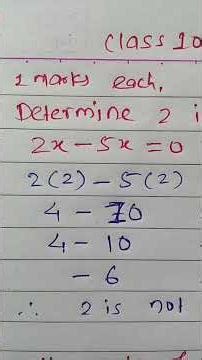 class 10
1 marks each,
Determine 2 i
2x - 5x = 0
2(2) - 5(2)
4 - 10
4 - 10
- 6
∴ 2 is not